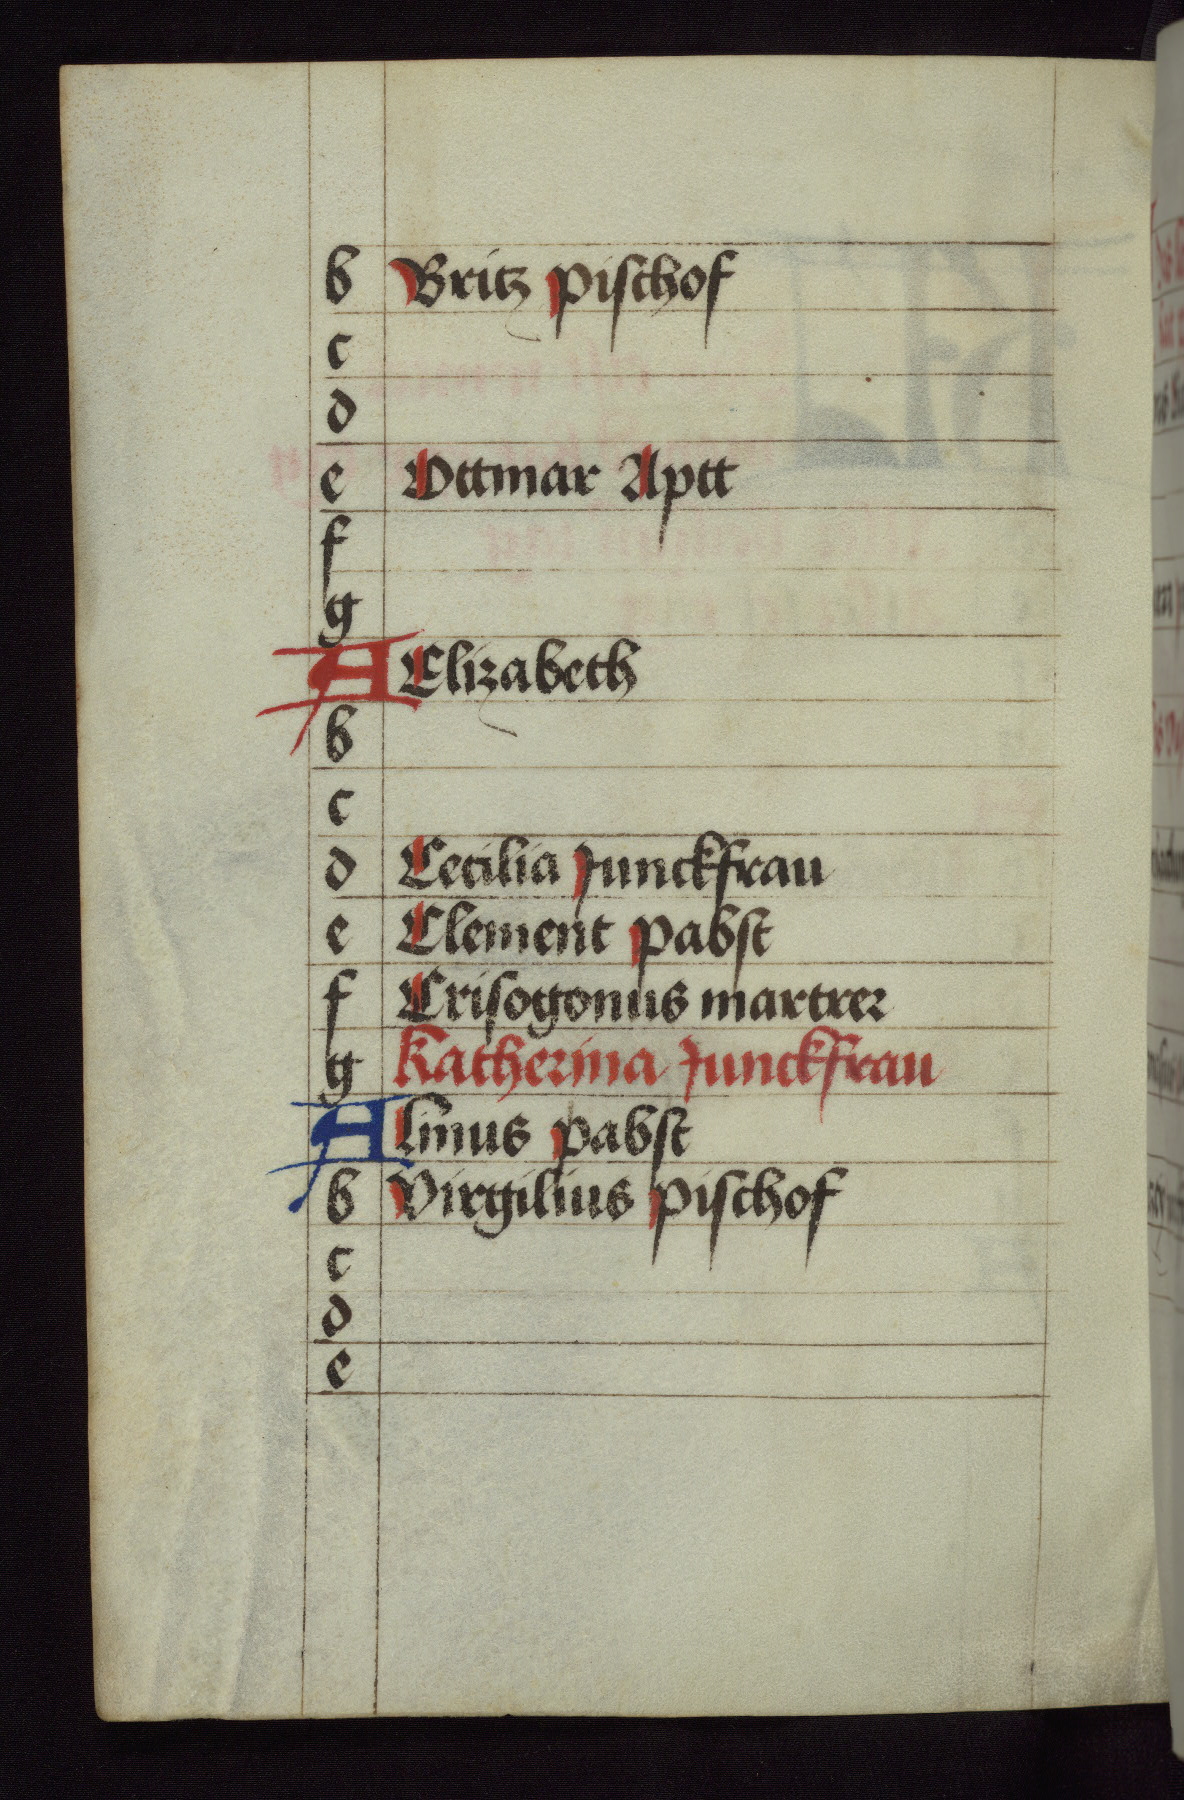 b Britz pischof
c
d
e Ottmar Aptt
f
g
A Elizabeth
b
c
d Cecilia Junckfrau
e Clement pabst
f Crisogonus martrer
g Katherina Junckfrau
A linus pabst
b Virgilius pischof
c
d
e